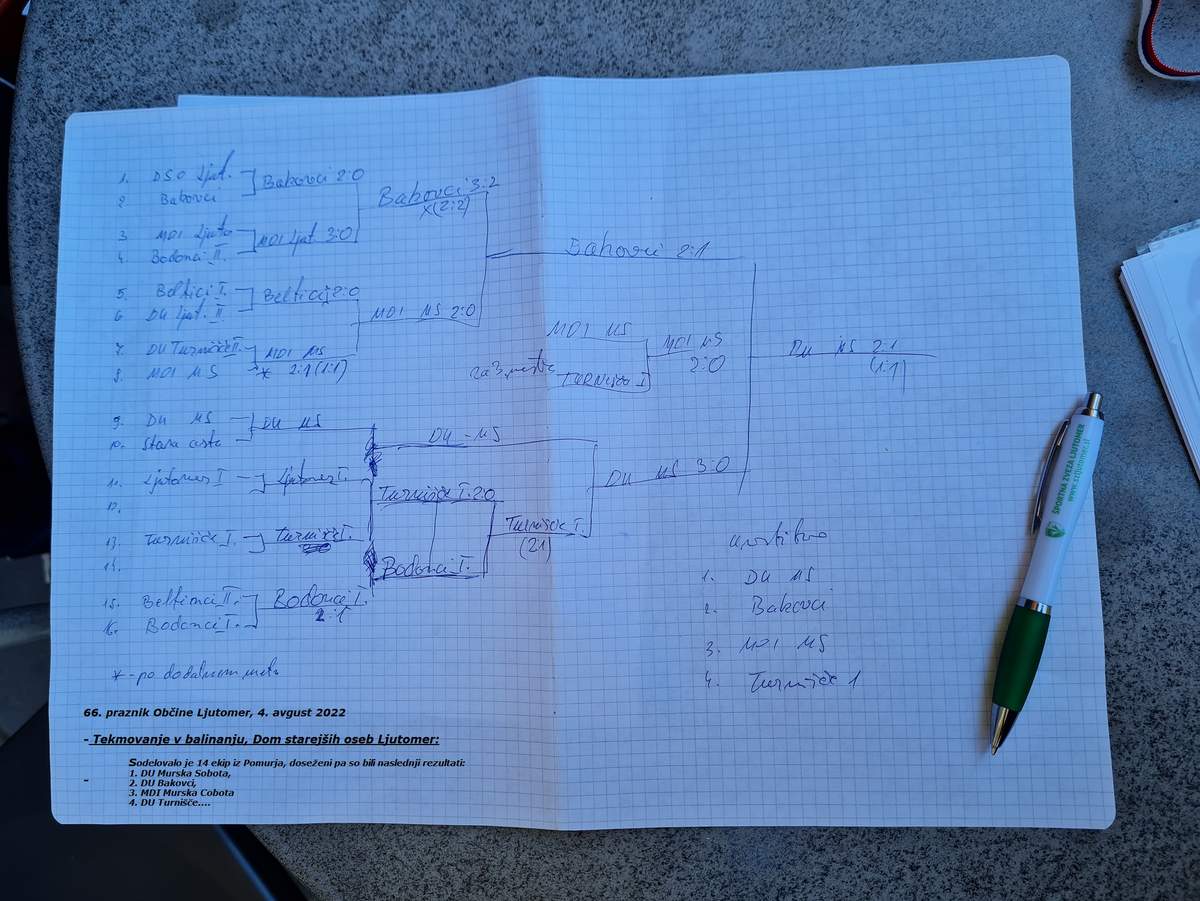 1. DSO Ljut.
2 Bakovci
Bakovci 2:0
3. MDI Ljuto
4. Bodonci II.
MDI Ljut 3:0
Bakovci 3:2
x(2:2)
5. Beltici I.
6 DU Ljut. II
Beltici 2:0
7. DU Turnišče II.
8. MDI MS
MDI MS
* 2:1 (1:1)
MDI MS 2:0
Bakovci 2:1
9. DU MS
10. Stara cesta
DU MS
11. Ljutomer I
12.
Ljutomer I.
DU - MS
13. Turnišče I.
14.
Turnišče I.
15. Beltinci II.
16. Bodonci I.
Bodonci I.
2:1
Turnišče I. 2:0
Bodonci I.
Turnišče I.
(21)
DU MS 3:0
MDI MS
za 3. mesto
TURNIŠČE I
MDI MS
2:0
DU MS 2:1
(1:1)
* - po dodatnem metu
1. DU MS
2. Bakovci
3. MDI MS
4. Turnišče 1
66. praznik Občine Ljutomer, 4. avgust 2022
- Tekmovanje v balinanju, Dom starejših oseb Ljutomer:
Sodelovalo je 14 ekip iz Pomurja, doseženi pa so bili naslednji rezultati:
1. DU Murska Sobota,
2. DU Bakovci,
3. MDI Murska Cobota
4. DU Turnišče....
-
ŠPORTNA ZVEZA LJUTOMER
www.szljutomer.si